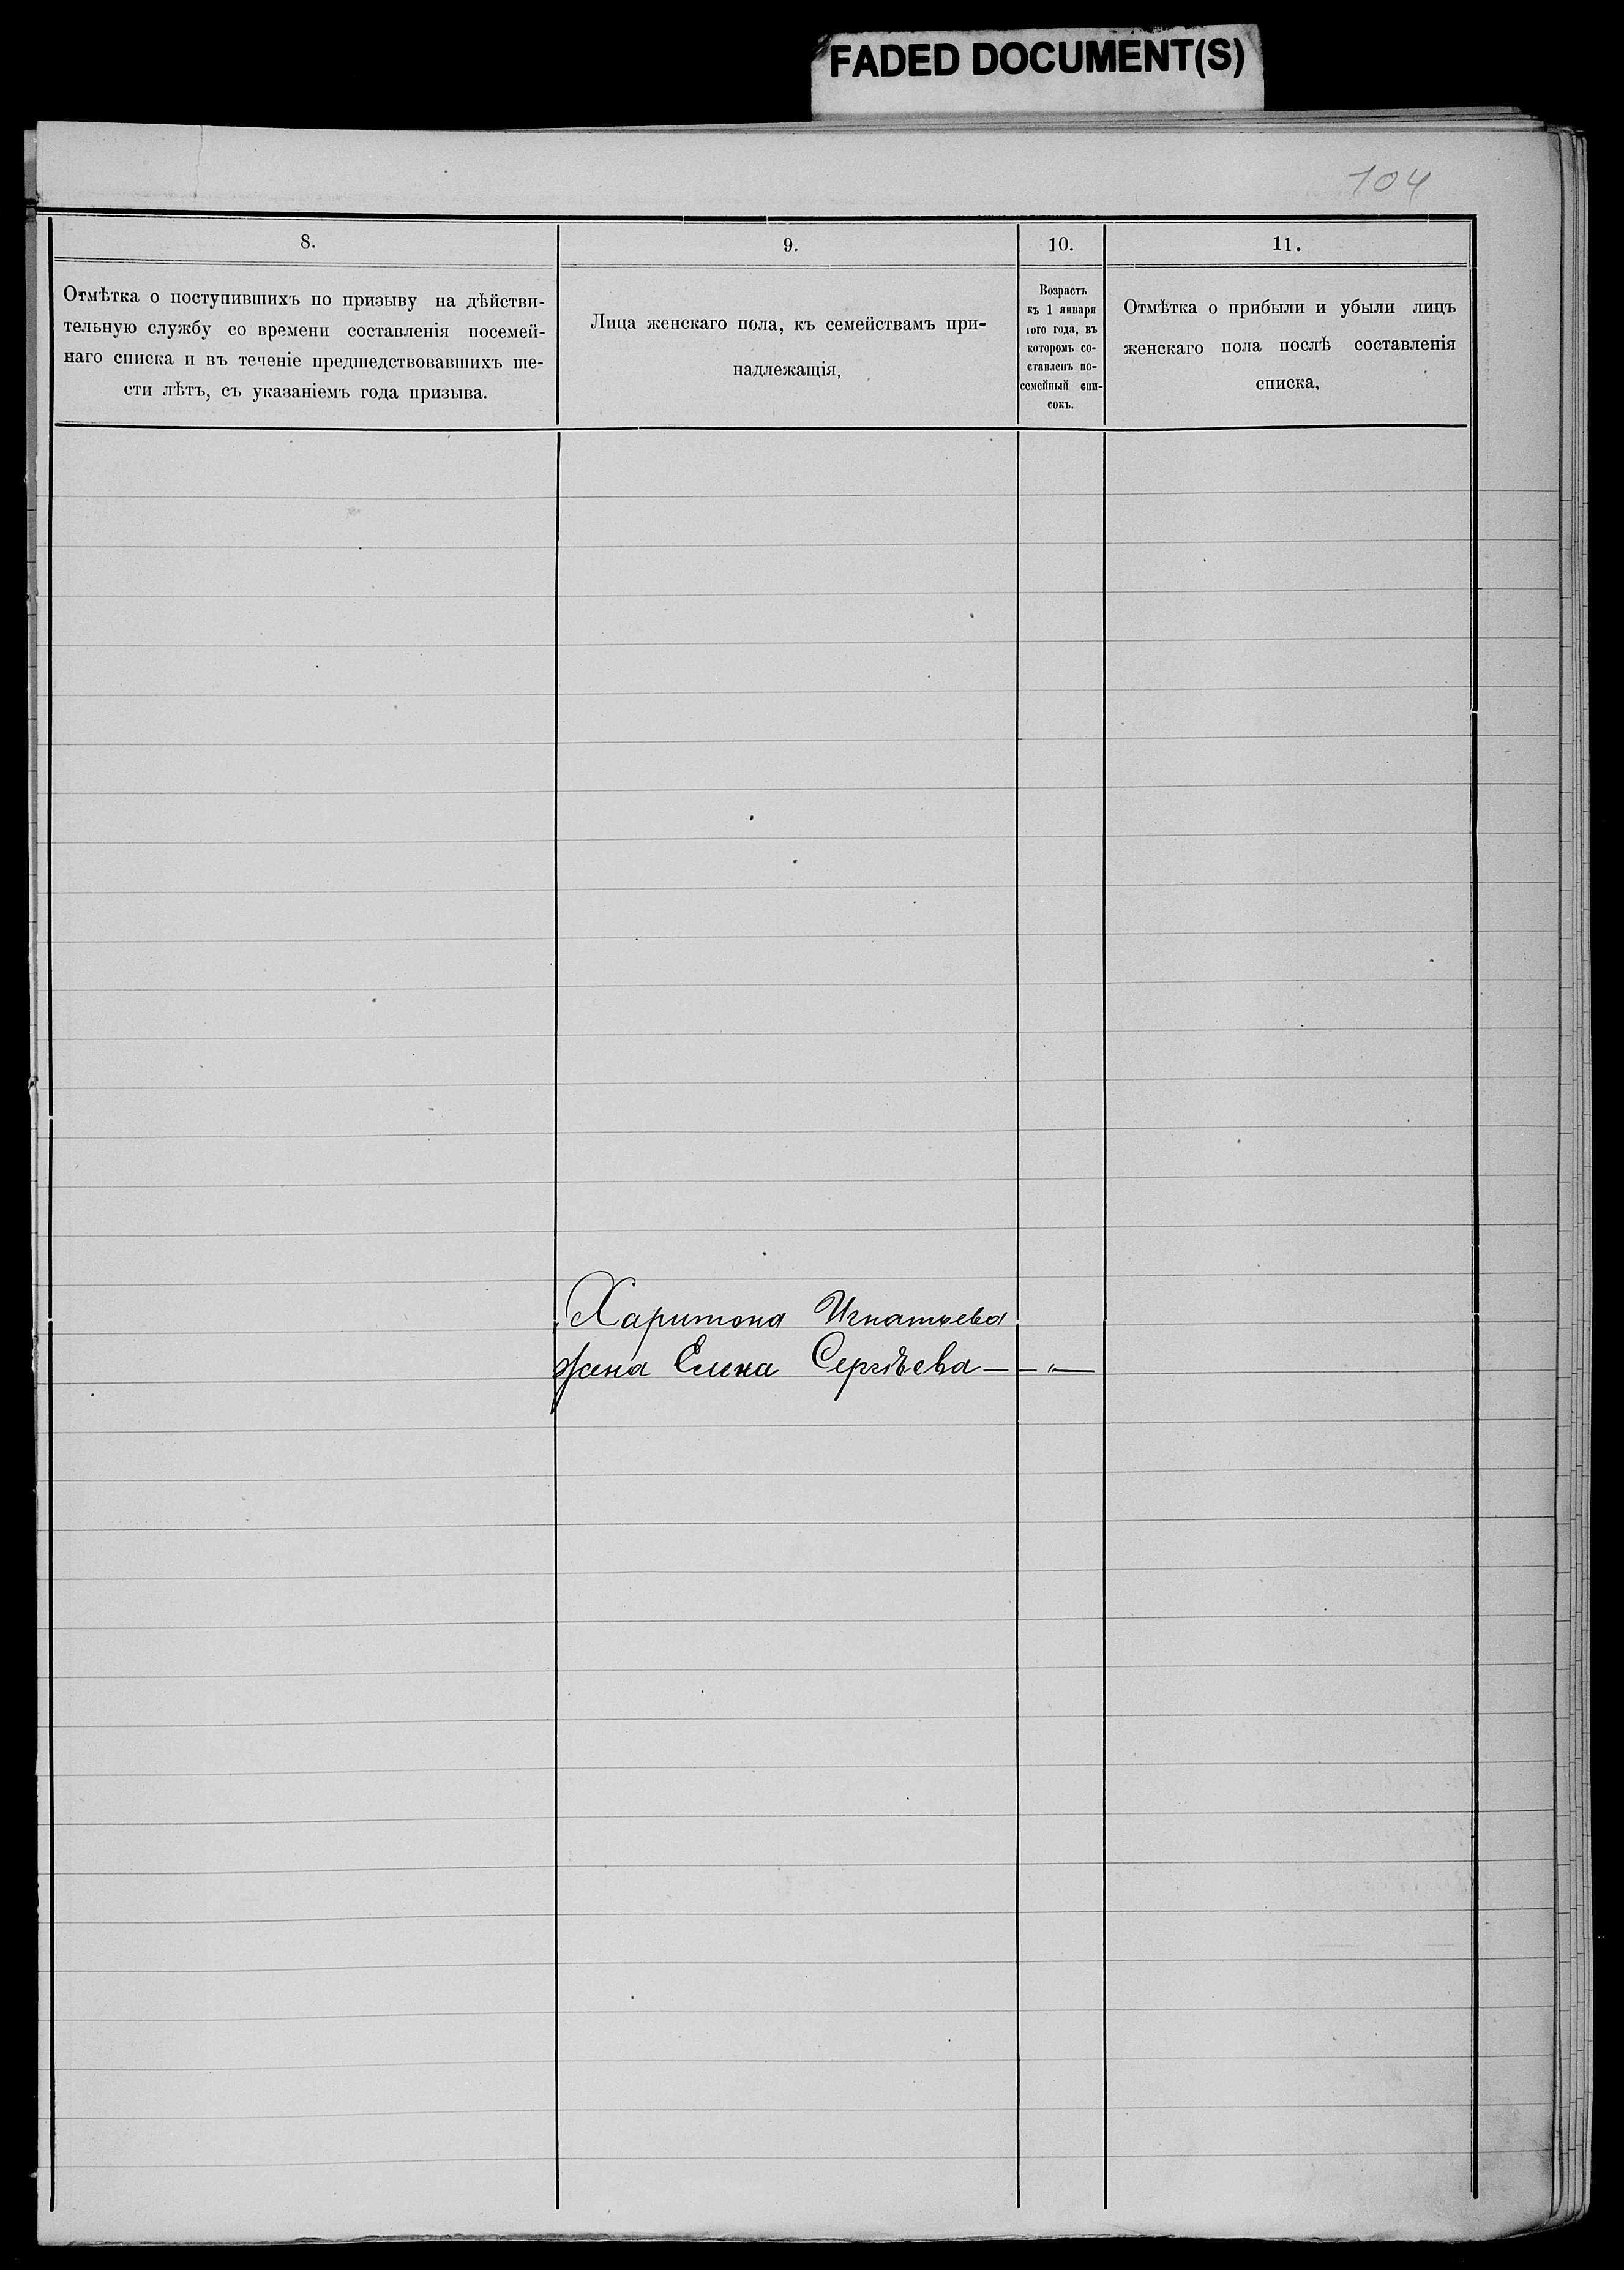 FADED DOCUMENT(S)
104
8.
9.
10.
11.
Отмѣтка о поступившихъ по призыву на дѣйстви-
тельную службу со времени составленія посемей-
наго списка и въ теченіе предшедствовавшихъ ше-
сти лѣтъ, съ указаніемъ года призыва.
Лица женскаго пола, къ семействамъ при-
надлежащія,
Возрастъ
къ 1 января
того года, въ
которомъ со-
ставленъ по-
семейный спи-
сокъ.
Отмѣтка о прибыли и убыли лицъ
женскаго пола послѣ составленія
списка,
Харитона Игнатьева
жена Елена Сергѣева — — „ —